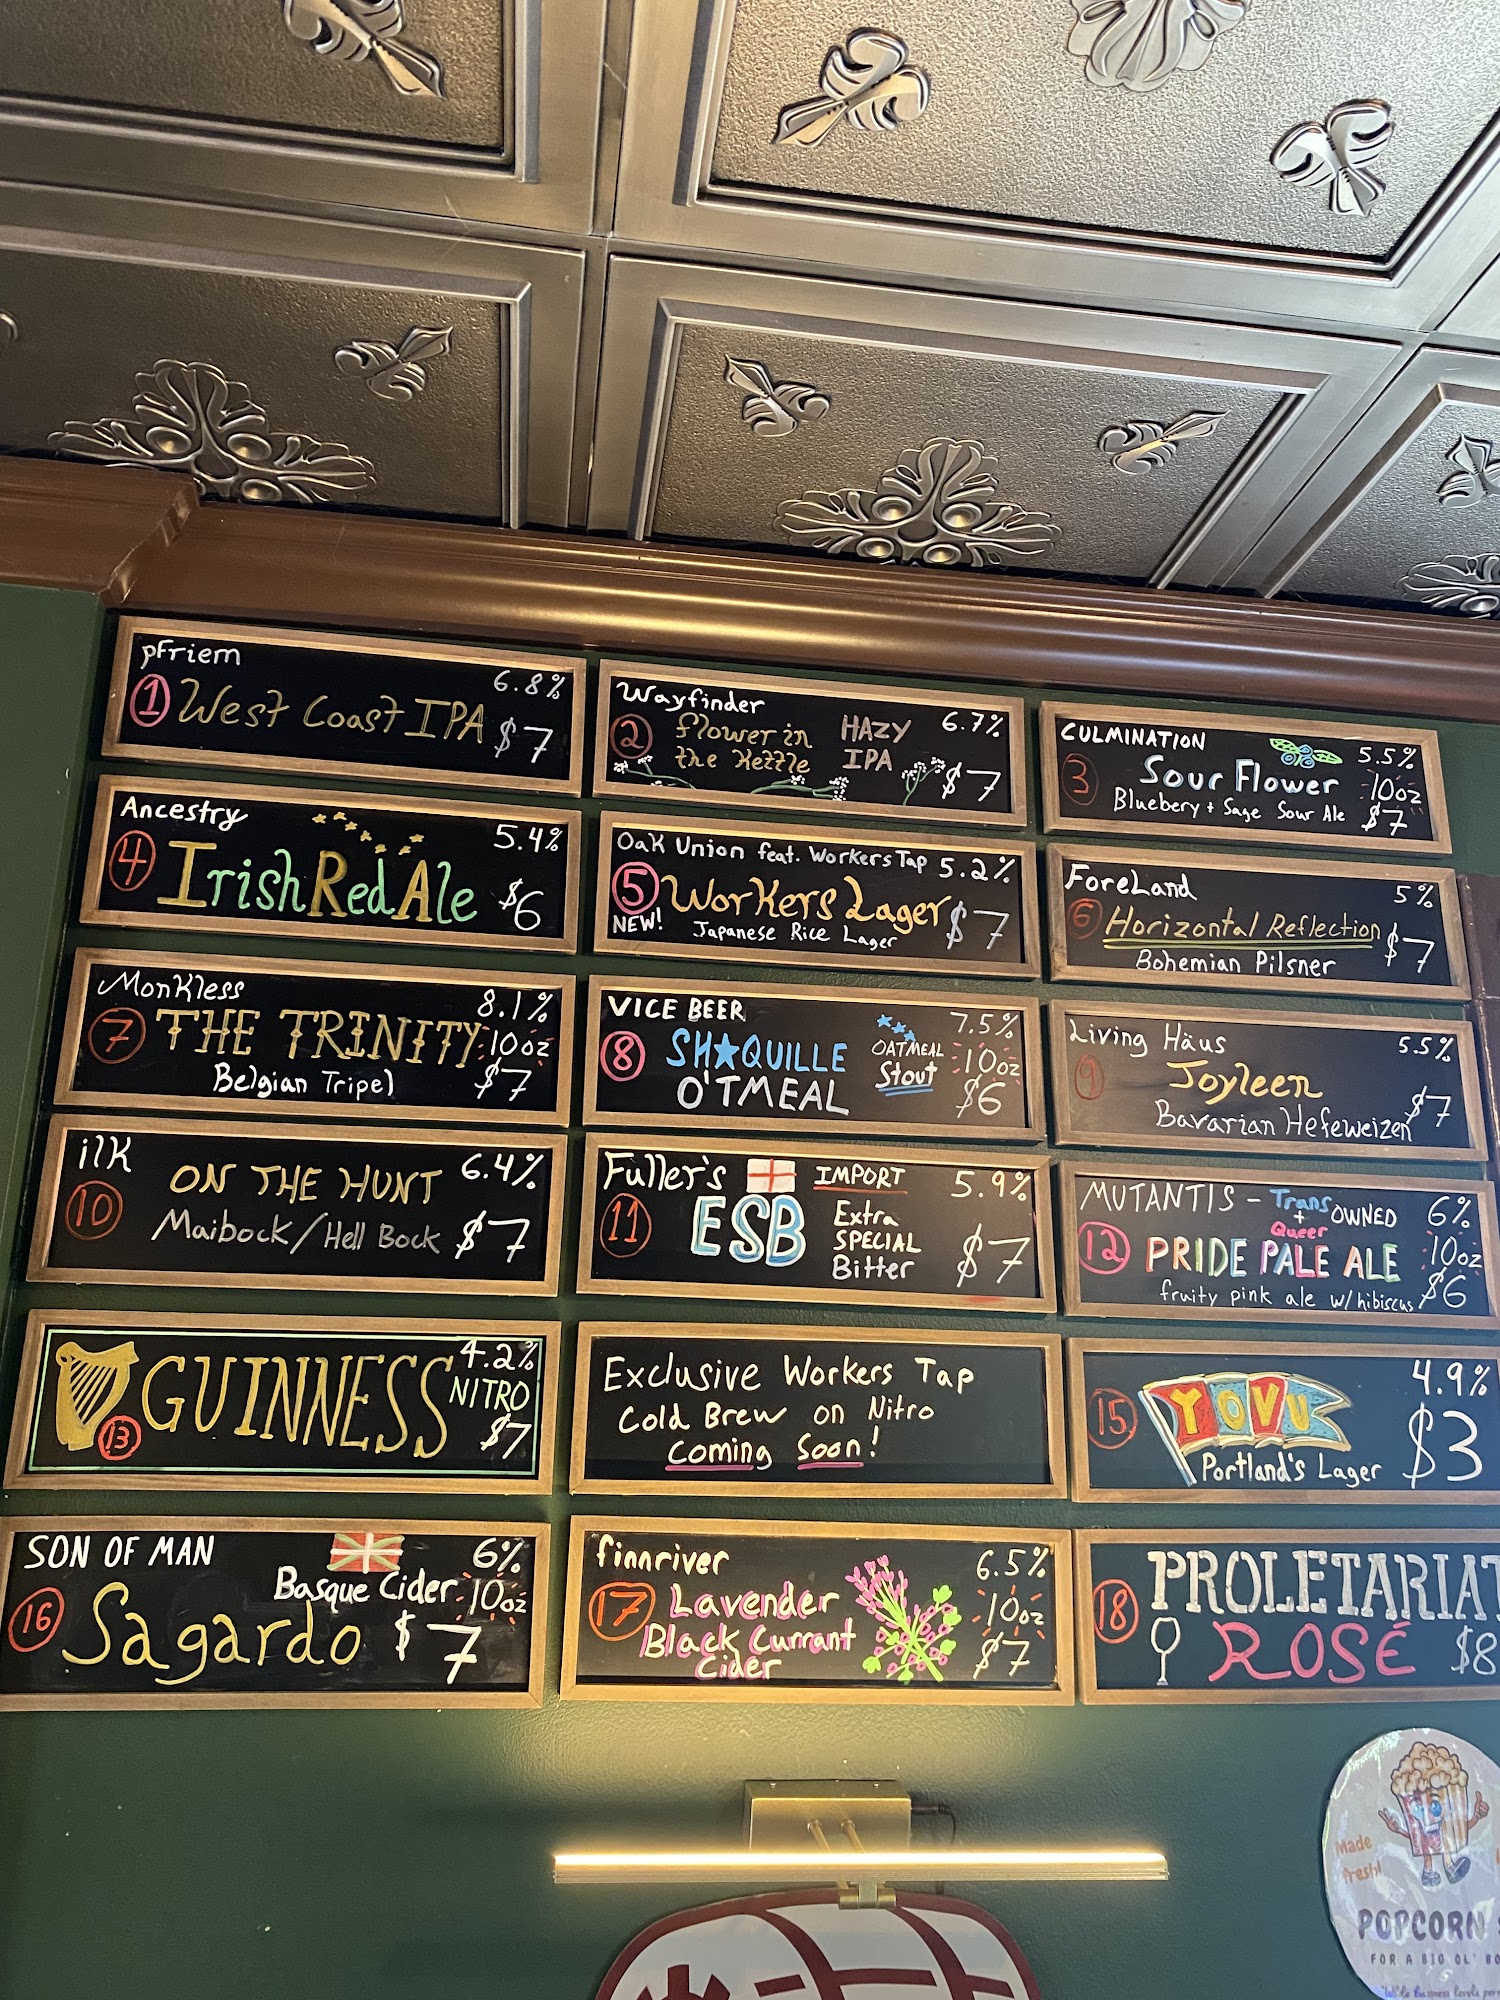 pFriem
6.8%
1 West Coast IPA $7
Wayfinder
6.7%
2 flower in the Kettle
HAZY IPA
$7
CULMINATION
5.5%
3 Sour Flower
10oz
Bluebery + Sage Sour Ale $7
Ancestry
5.4%
4 Irish Red Ale $6
Oak Union feat. Workers Tap 5.2%
5 Workers Lager $7
NEW! Japanese Rice Lager
ForeLand
5%
6 Horizontal Reflection $7
Bohemian Pilsner
Monkless
8.1%
7 THE TRINITY 10oz
Belgian Tripel $7
VICE BEER
7.5%
8 SH★QUILLE
O'TMEAL
OATMEAL
Stout
10oz
$6
Living Häus
5.5%
9 Joyleen
Bavarian Hefeweizen $7
ilk
6.4%
10 ON THE HUNT
Maibock/Hell Bock $7
Fuller's
IMPORT
5.9%
11 ESB
Extra
SPECIAL
Bitter
$7
MUTANTIS - Trans + Queer OWNED 6%
12 PRIDE PALE ALE 10oz
fruity pink ale w/hibiscus $6
4.2%
13 GUINNESS NITRO
$7
Exclusive Workers Tap
Cold Brew on Nitro
Coming Soon!
4.9%
15 YOVU
Portland's Lager $3
SON OF MAN
6%
Basque Cider 10oz
16 Sagardo $7
finnriver
6.5%
17 Lavender
Black Currant
Cider
10oz
$7
18 PROLETARIAT
ROSÉ $8
Made
fresh!
POPCORN
FOR A BIG OL' BO